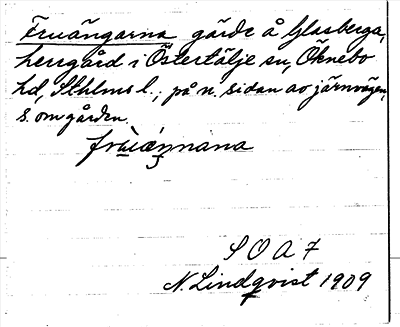 Fruängarna gärde å Glasberga,
herrgård i Östertälje sn, Öknebo
hd, Sthlms l.; på n. sidan av järnvägen,
s. om gården.
frùæ̀ŋnana
S O A 7
N. Lindqvist 1909